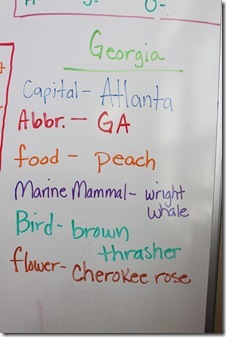 Georgia
Capital- Atlanta
Abbr. - GA
food - peach
Marine Mammal- wright
whale
Bird- brown
thrasher
flower- cherokee rose